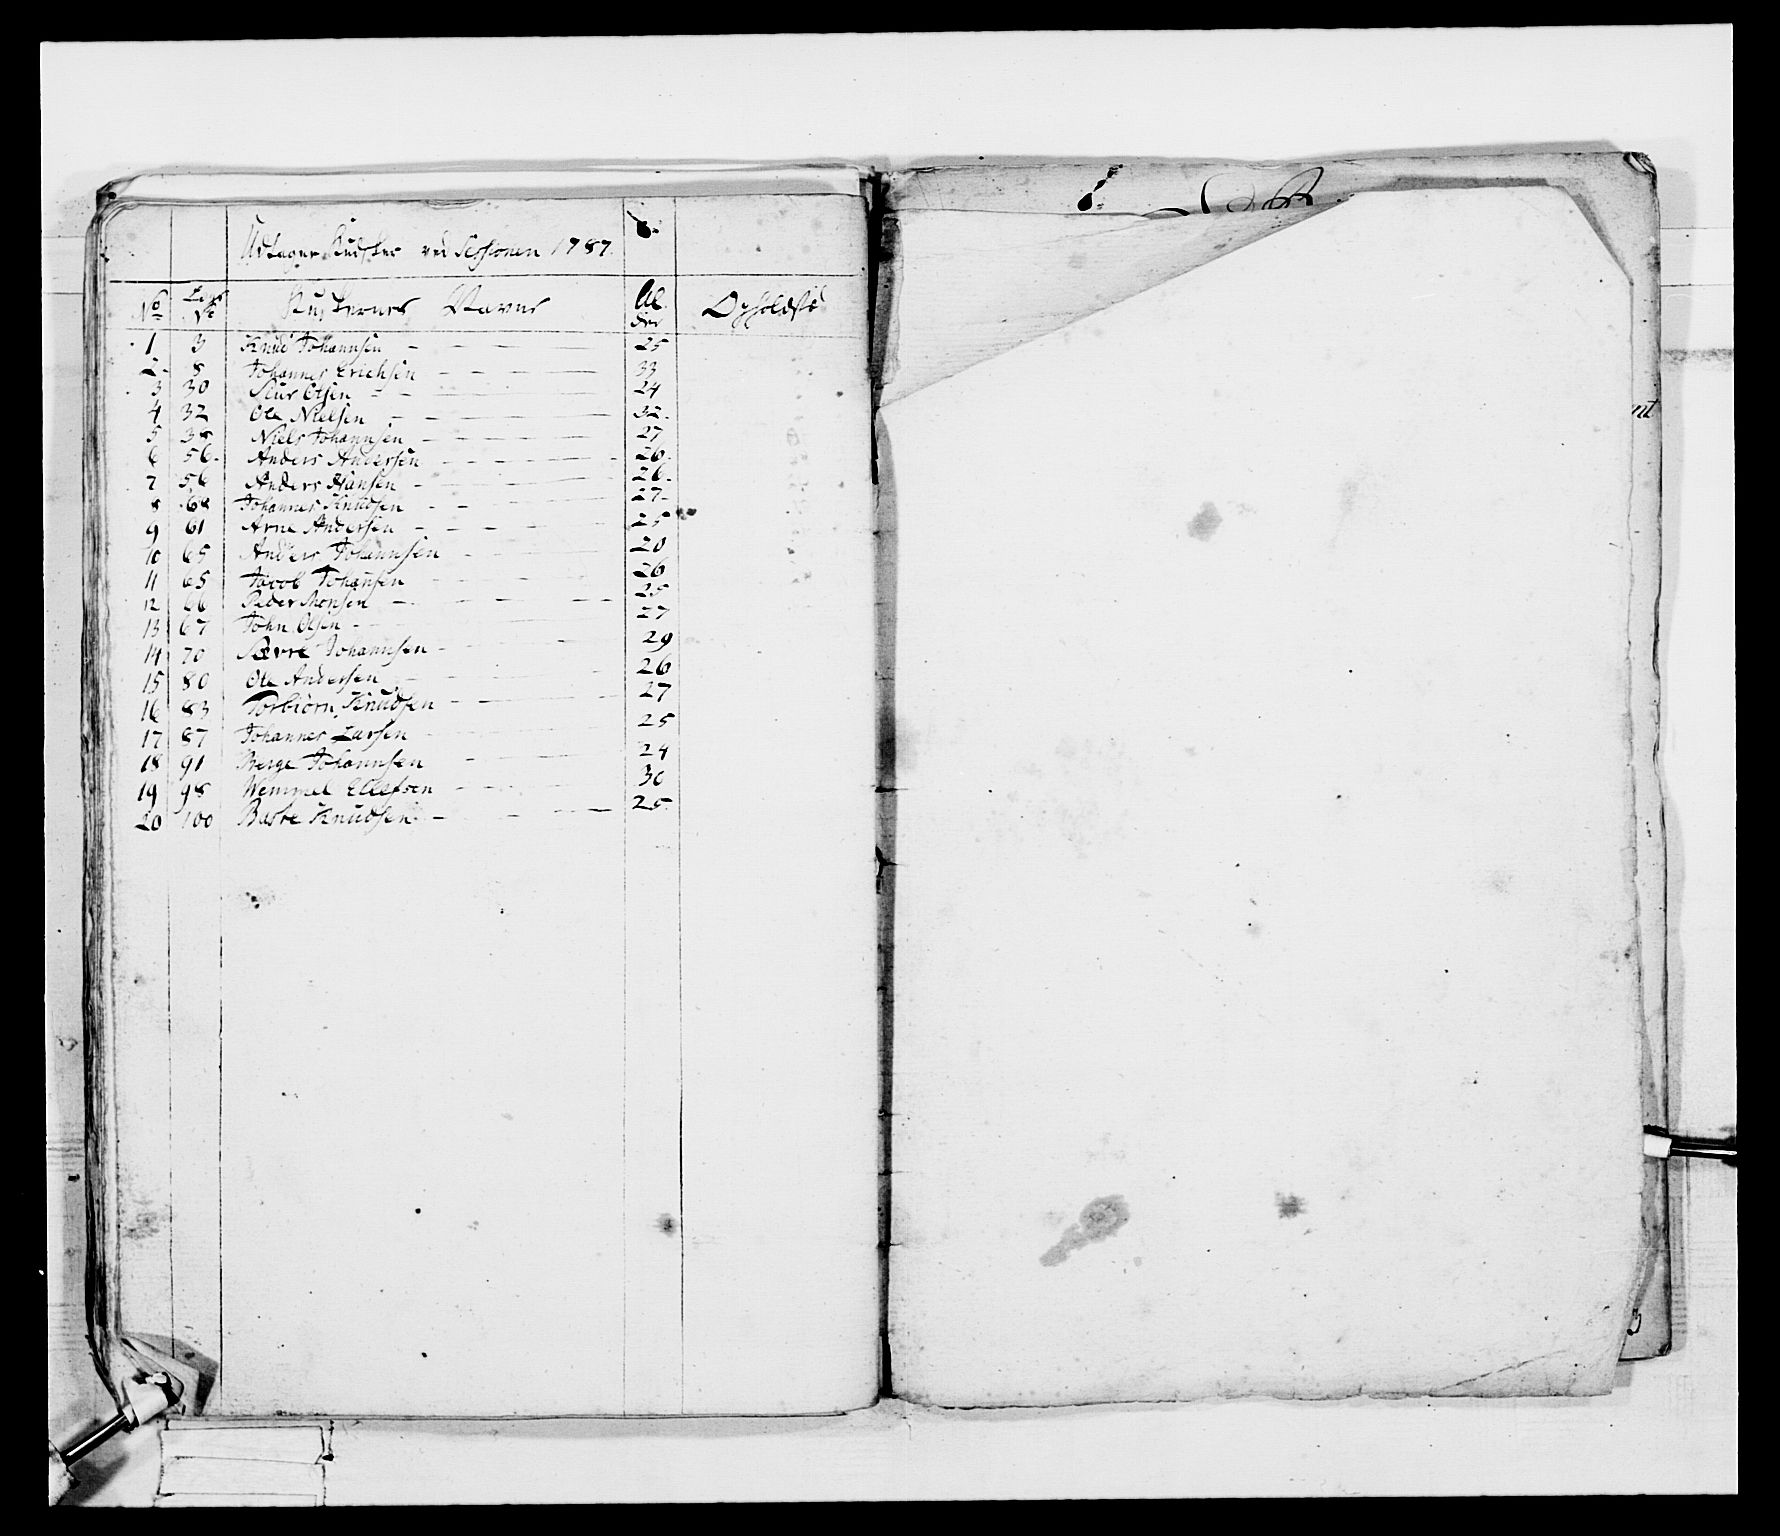 Udtagne Kudsker ved Sessionen 1787.
No Lægs No Kuskernes Navne Alder Opholdsted
1 3 Knud Johannsen 25
2 8 Johannes Erichsen 33
3 30 Siur Olsen 24
4 32 Ole Nielsen 32
5 38 Niels Johannsen 27
6 56 Anders Andersen 26
7 56 Anders Hansen 26
8 68 Johannes Knudsen 27
9 61 Arne Andersen 25
10 65 Anders Johannsen 20
11 65 Jacob Johansen 26
12 66 Peder Monsen 25
13 67 John Olsen 27
14 70 Johannsen 29
15 80 Ole Andersen 26
16 83 Torbiørn Knudsen 27
17 87 Johannes Larsen 25
18 91 Børge Johannsen 24
19 98 Wemmel Ellefsen 30
20 100 Baste Knudsen 25